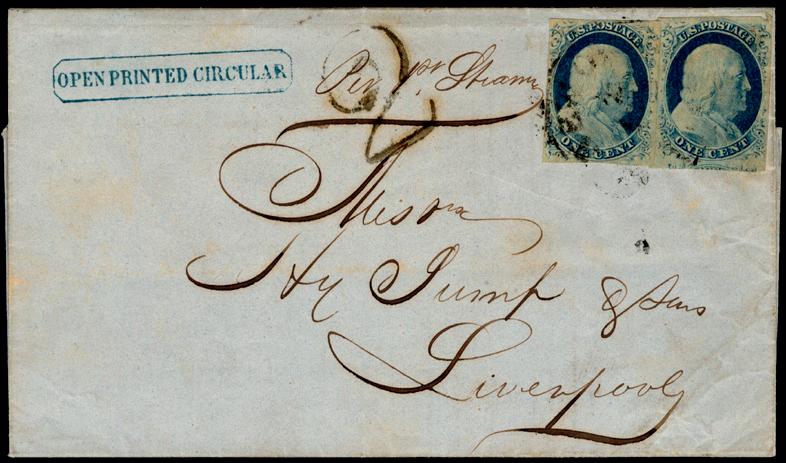 OPEN PRINTED CIRCULAR
Per pr. Steamer
2
U.S. POSTAGE
ONE CENT
U.S. POSTAGE
ONE CENT
Messrs
Hy Jump & Sons
Liverpool